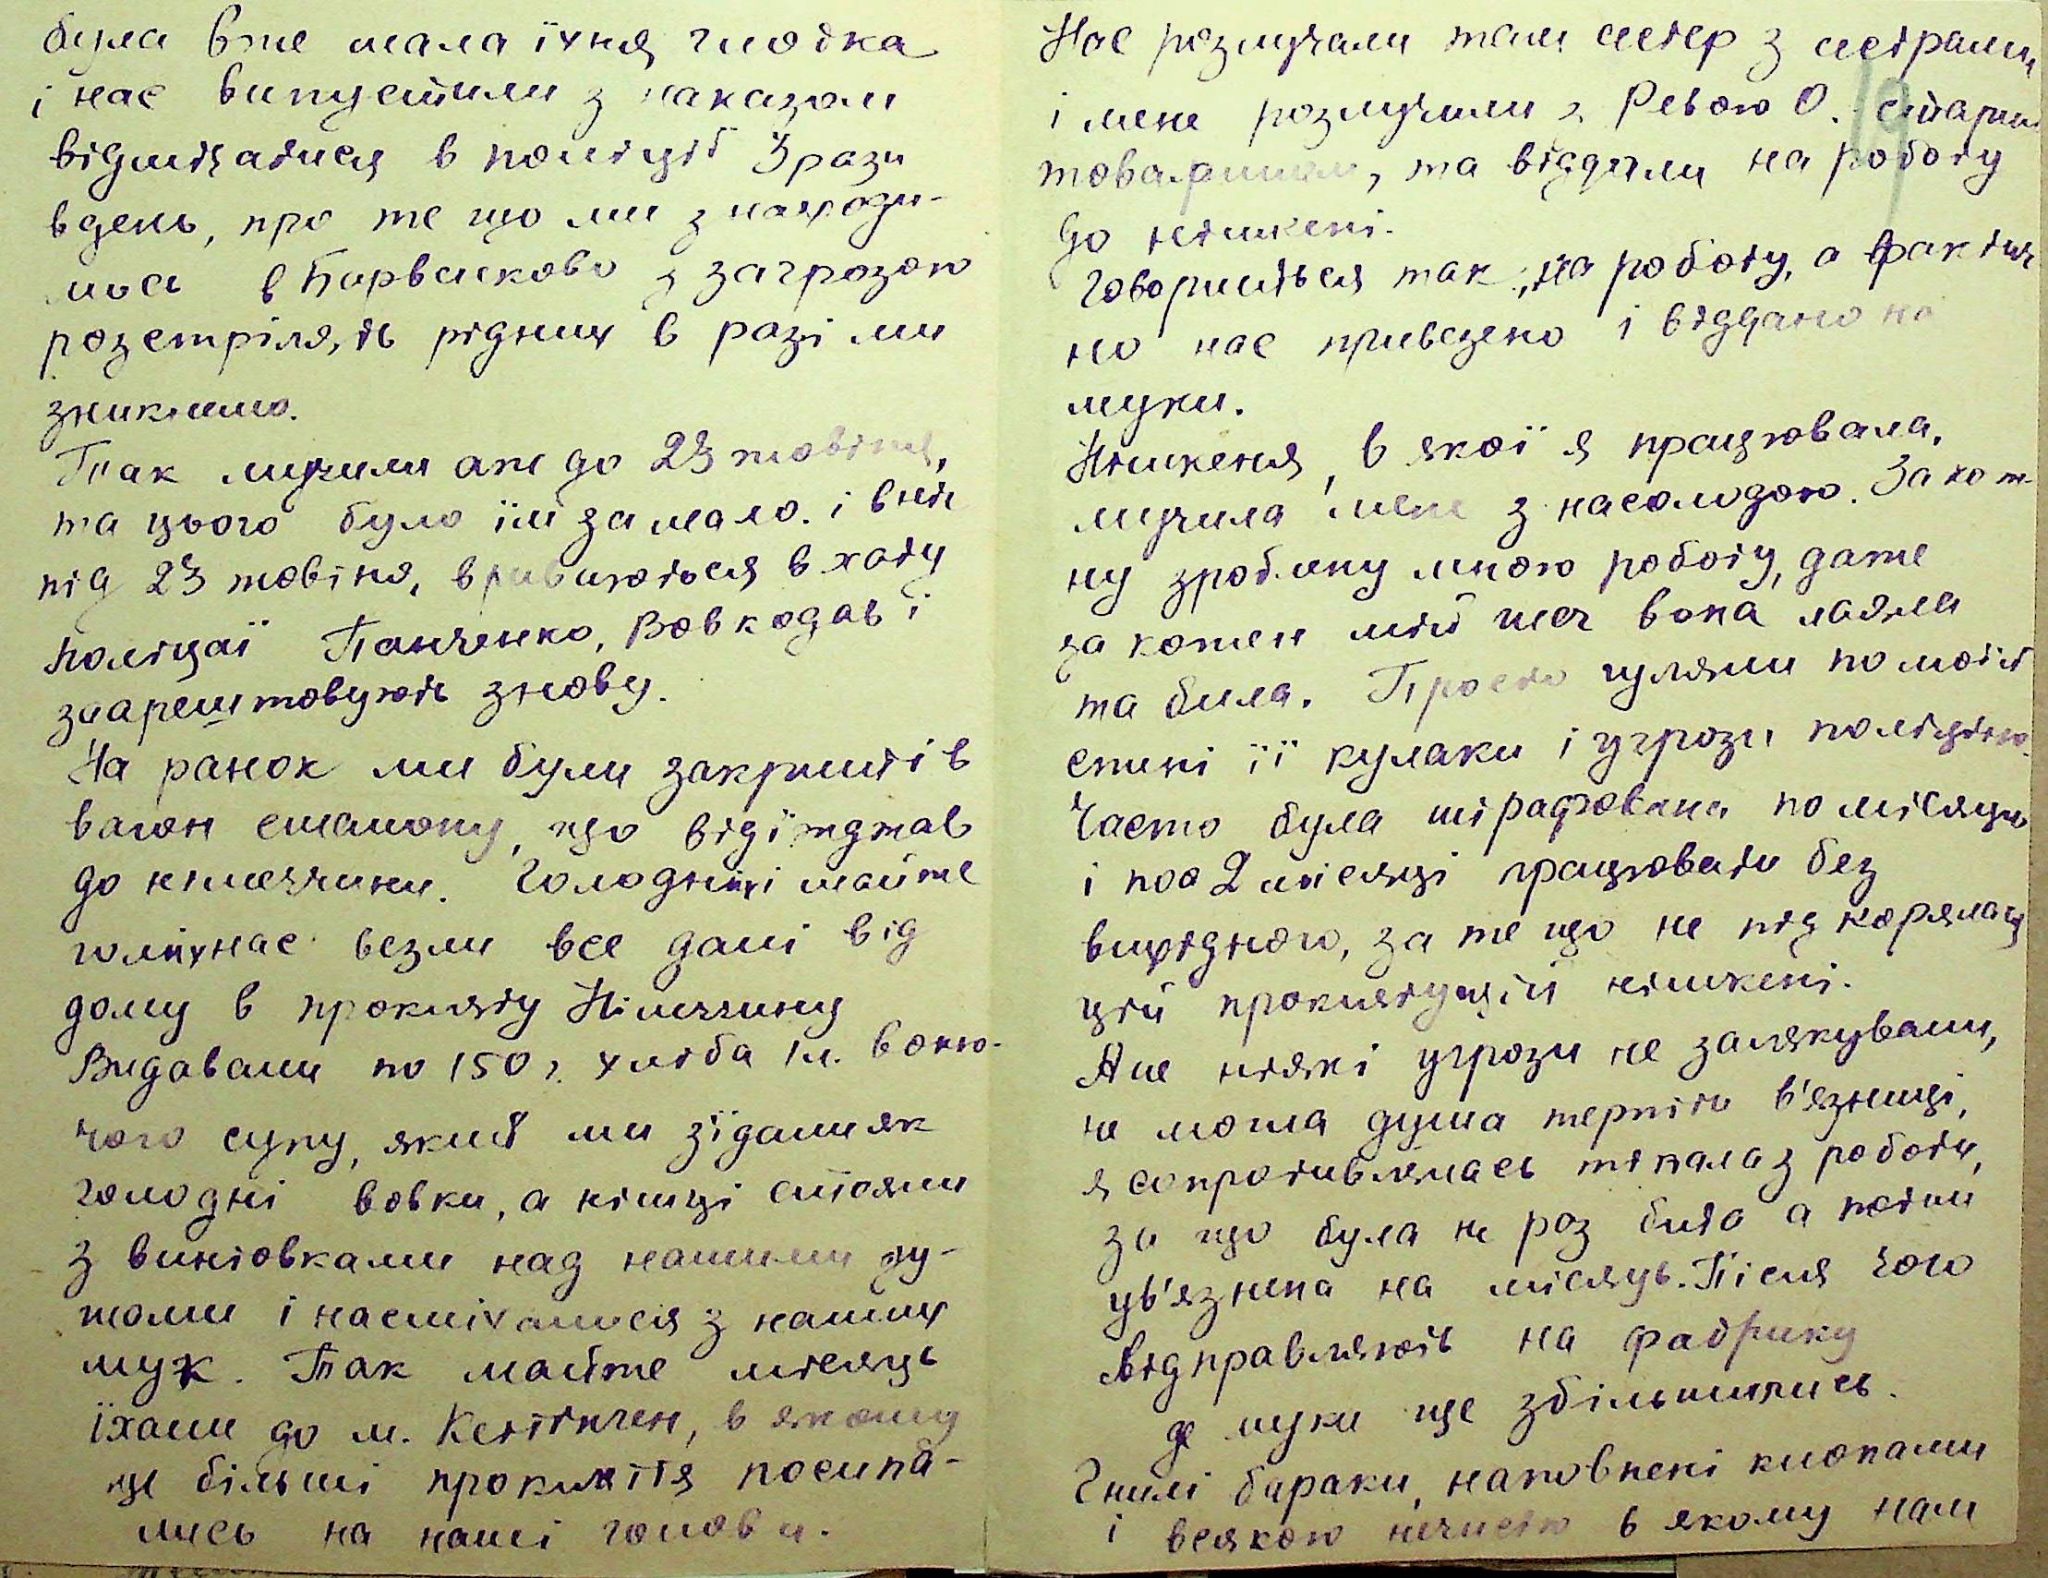 була вже мала їхня глотка
і нас випустили з наказом
відмічатися в поліції 3 рази
вдень, про те що ми знаходи-
мось в Барвенково з загрозою
розстрілять рідних в разі ми
зникнемо.
Так мучили аж до 23 жовтня,
та цього було їм замало. і в ніч
під 23 жовтня, вриваються в хату
поліцаї Панченко, Вовкодав і
заарештовують знову.
На ранок ми були закриті в
вагон ешалону, що відїжджав
до німеччини. Голодних і майже
голих нас везли все далі від
дому в прокляту Німеччину
Видавали по 150 г. хліба 1 л. воню-
чого супу, який ми зїдали як
голодні вовки, а німці стояли
з винтовками над нашими ду-
шами і насміхалися з наших
мук. Так майже місяць
їхали до м. Кеттінген, в якому
ще більші прокляття посипа-
лись на наші голови.
19
Нас розлучали там сестер з сестрами
і мене розлучили з Ревою О. старим
товаришем, та віддали на роботу
до німкені.
Говориться так, на роботу, а фактич
но нас привезено і віддано на
муки.
Німкеня, в якої я працювала,
мучила мене з насолодою. За кож-
ну зроблену мною роботу, даже
за кожен мій шаг вона лаяла
та била. Просто гуляли по моїй
спині її кулаки і угрози поліцією.
Часто була штрафована по місяцю
і поо 2 місяці працювати без
вихідного, за те що не підкорялась
цій проклятущій німкені.
Але ніякі угрози не залякували,
не могла душа терпіти в'язниці,
я сопротивлялась тікала з роботи,
за що була не раз бита а потім
ув'язнена на місяць. Після чого
відправляють на фабрику
де муки ще збільшились.
Гнилі бараки, наповнені клопами
і всякою нечистю в якому нам